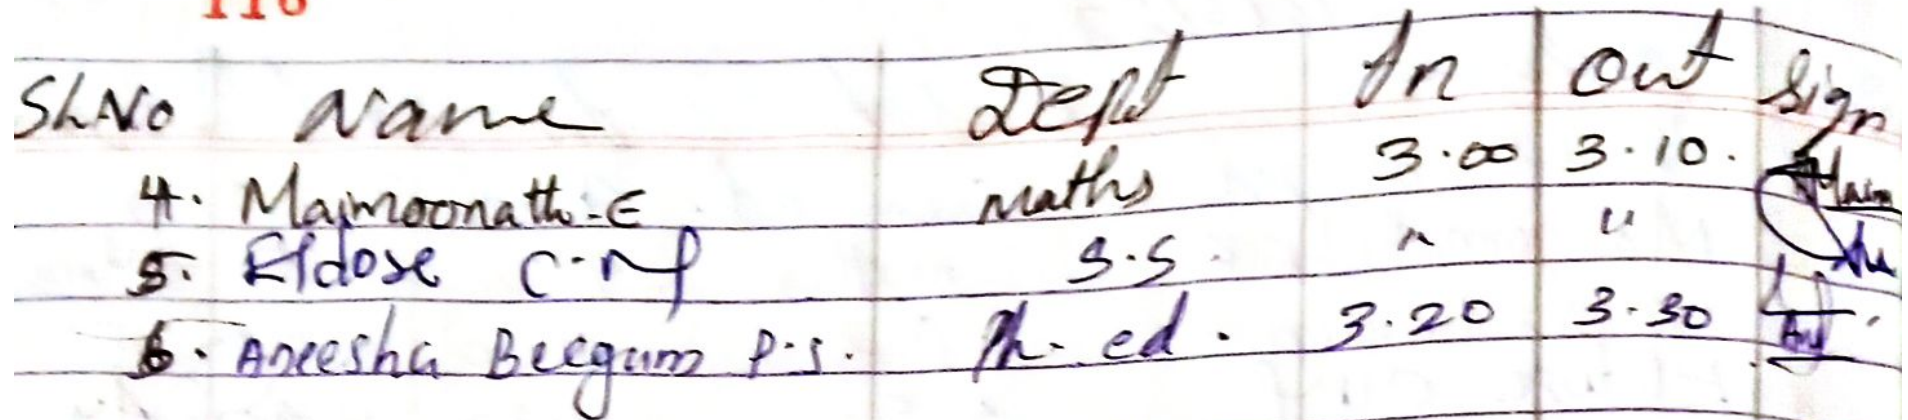 116
Sl.No Name Dept In Out Sign
4. Majmoonath.E maths 3.00 3.10.
5. Eldose C.M S.S. " "
6. Aneesha Beegum P.S. Ph. ed. 3.20 3.30